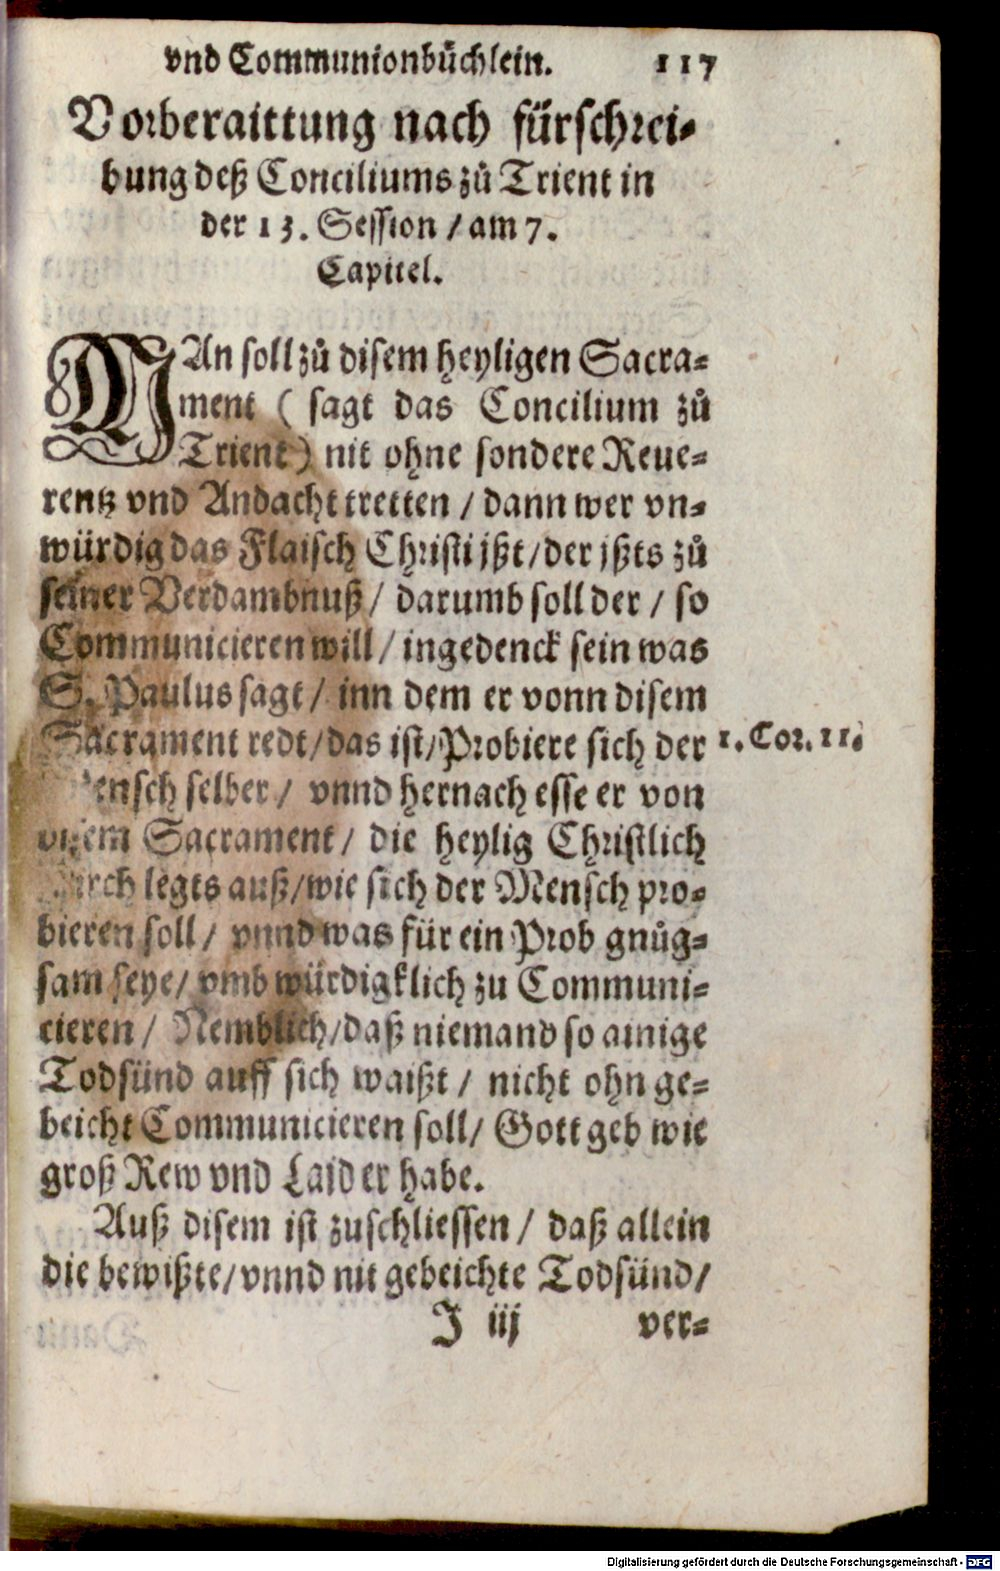 vnd Communionbůchlein. 117
Vorberaittung nach fürschrei-
bung deß Conciliums zů Trient in
der 13. Session / am 7.
Capitel.
MAn soll zů disem heyligen Sacra-
ment ( sagt das Concilium zů
Trient ) nit ohne sondere Reue-
rentz vnd Andacht tretten / dann wer vn-
würdig das Flaisch Christi jßt / der jßts zů
seiner Verdambnuß / darumb soll der / so
Communicieren will / ingedenck sein was
S. Paulus sagt / inn dem er vonn disem
Sacrament redt / das ist / Probiere sich der
ensch selber / vnnd hernach esse er von
disem Sacrament / die heylig Christlich
irch legts auß / wie sich der Mensch pro-
bieren soll / vnnd was für ein Prob gnůg-
sam seye / vmb würdigklich zu Communi-
cieren / Nemblich / daß niemand so ainige
Todsünd auff sich waißt / nicht ohn ge-
beicht Communicieren soll / Gott geb wie
groß Rew vnd Laid er habe.
Auß disem ist zuschliessen / daß allein
die bewißte / vnnd nit gebeichte Todsünd /
J iij ver-
1. Cor. 11.
Digitalisierung gefördert durch die Deutsche Forschungsgemeinschaft - DFG